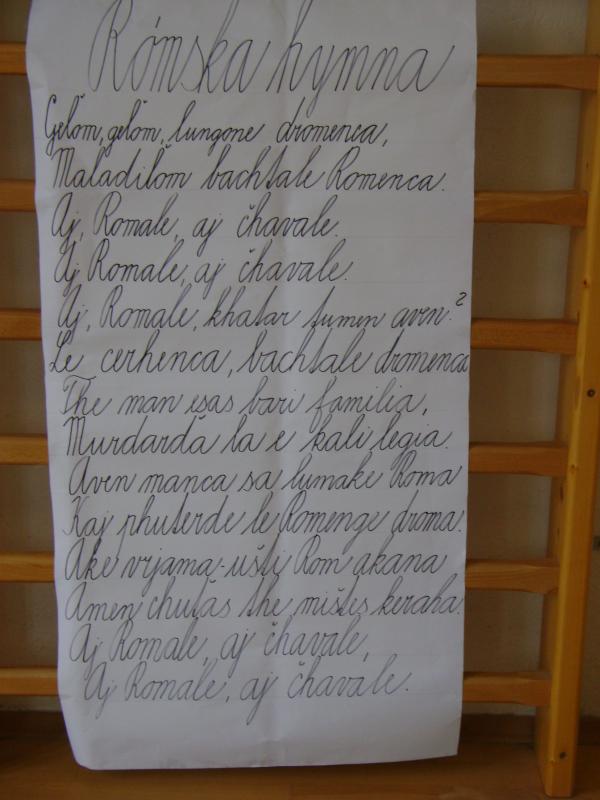 Rómska hymna
Geľom, geľom, lungone dromenca,
Maladiľom bachtale Romenca.
Aj, Romale, aj čhavale.
Aj Romale, aj čhavale.
Aj, Romale, khatar tumen aven?
Le cerhenca, bachtale dromenca
The man esas bari familia,
Murdarďa la e kali legia.
Aven manca sa lumake Roma
Kaj phuterde le Romenge droma.
Ake vrjama - ušti Rom akana
Amen chutas the mištes keraha.
Aj Romale, aj čhavale,
Aj Romale, aj čhavale.